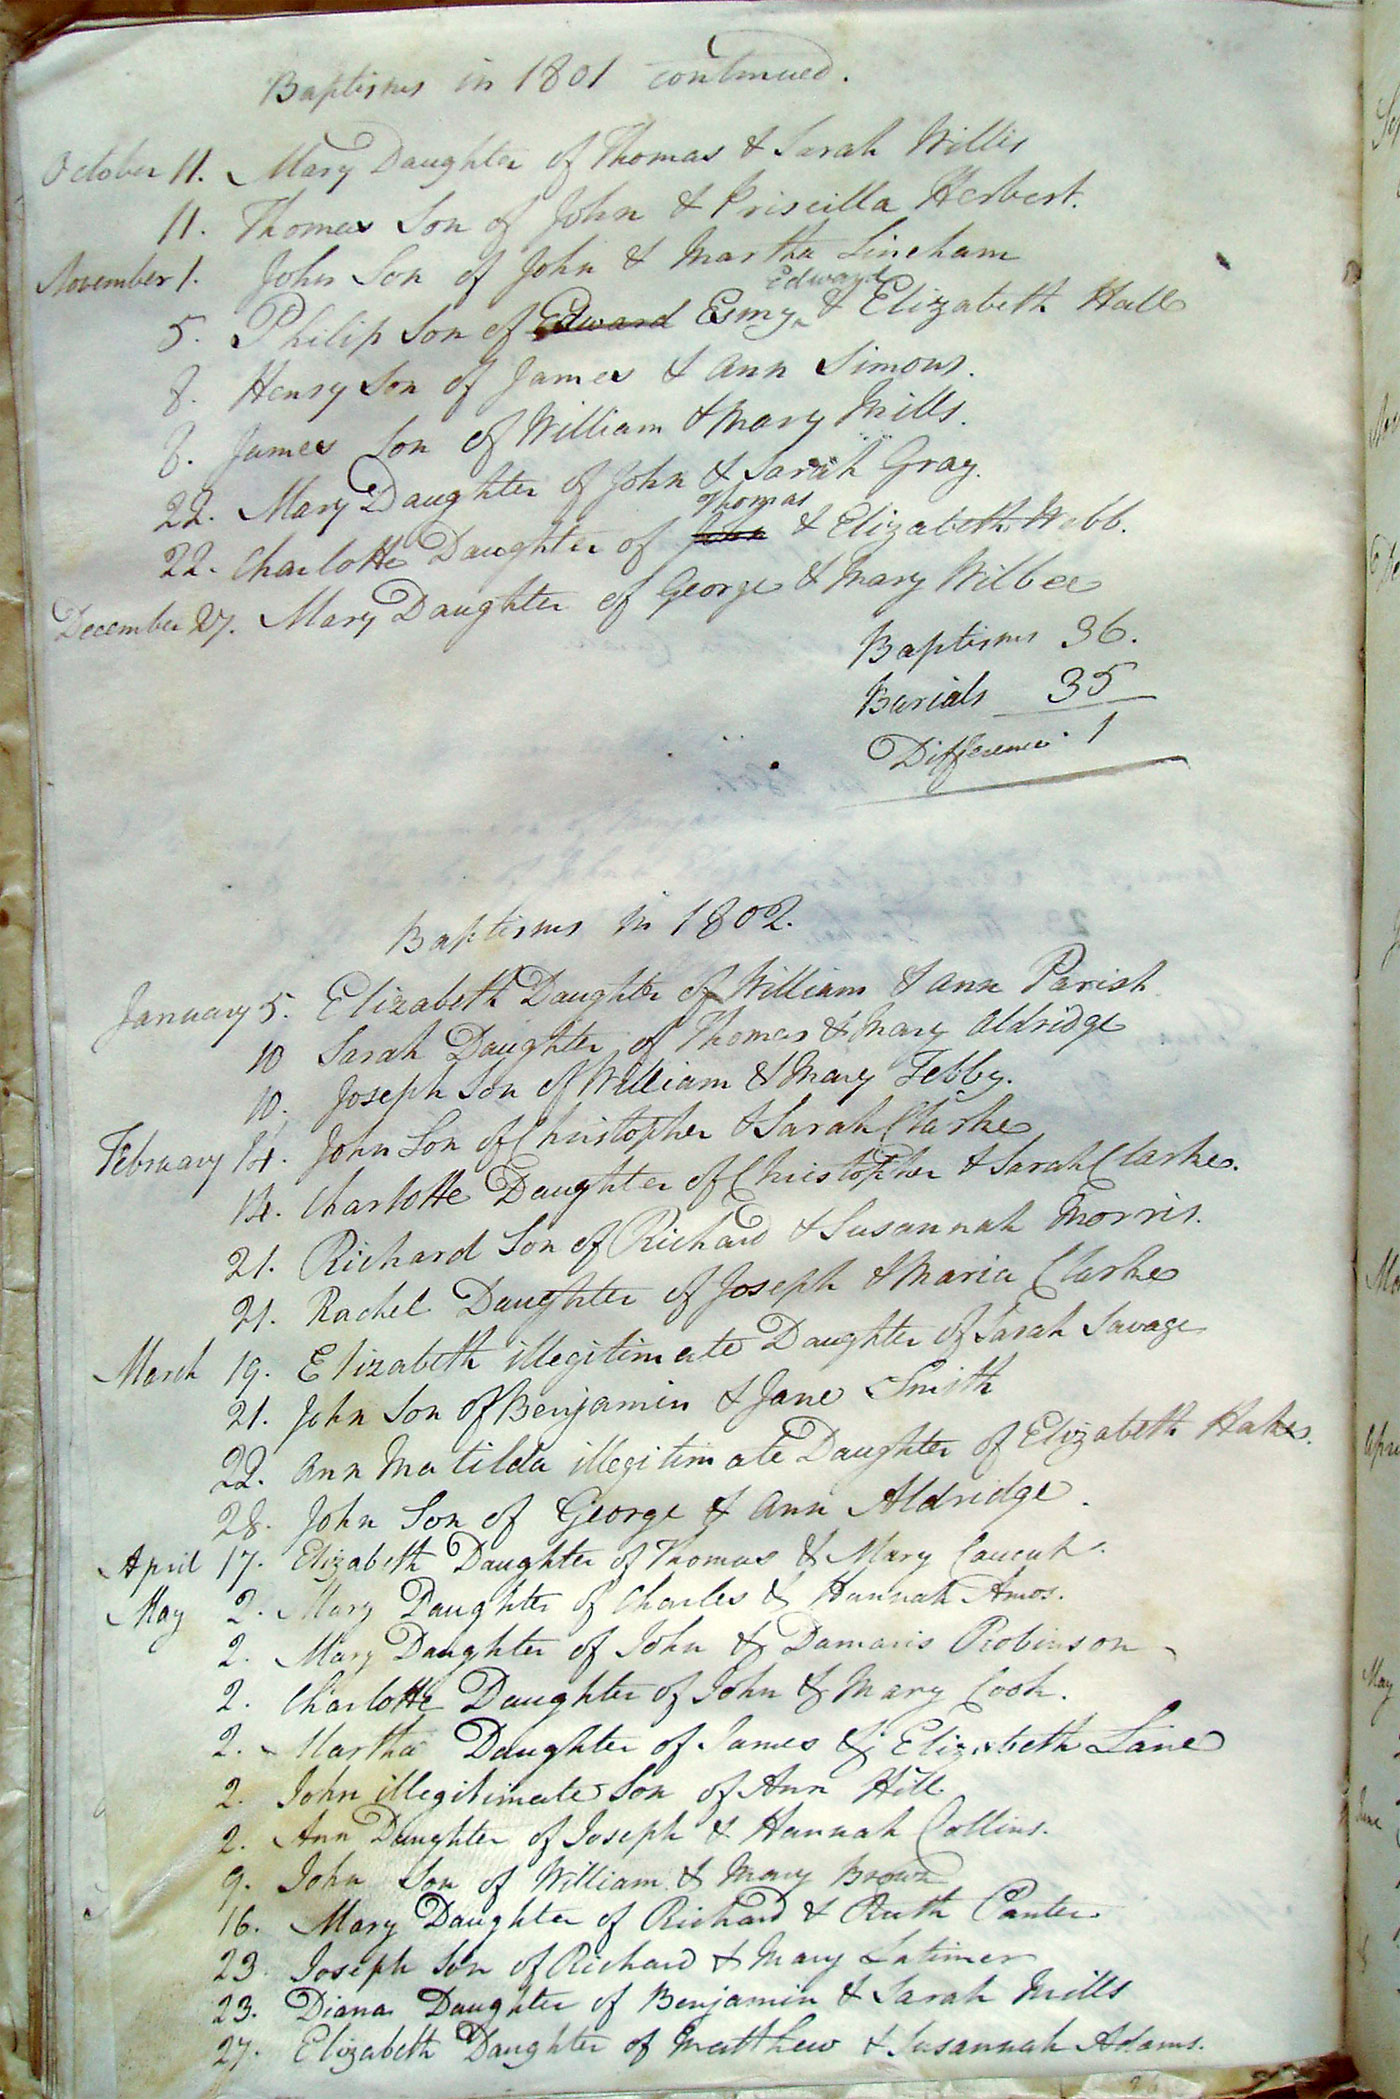 Baptisms in 1801 continued.
October 11. Mary Daughter of Thomas & Sarah Willis
11. Thomas Son of John & Priscilla Herbert.
November 1. John Son of John & Martha Lineham
Edward
5. Philip Son of Edward Esmy & Elizabeth Hall
8. Henry Son of James & Ann Simons.
8. James Son of William & Mary Mills.
22. Mary Daughter of John & Sarah Gray.
Thomas
22. Charlotte Daughter of John & Elizabeth Webb.
December 27. Mary Daughter of George & Mary Wilbee
Baptisms 36.
Burials 35
Difference 1
Baptisms in 1802.
January 5. Elizabeth Daughter of William & Ann Parish
10 Sarah Daughter of Thomas & Mary Aldridge
10. Joseph Son of William & Mary Tebby.
February 14. John Son of Christopher & Sarah Clarke
14. Charlotte Daughter of Christopher & Sarah Clarke.
21. Richard Son of Richard & Susannah Morris.
21. Rachel Daughter of Joseph & Maria Clarke
March 19. Elizabeth illegitimate Daughter of Sarah Savage
21. John Son of Benjamin & Jane Smith
22. Ann Matilda illegitimate Daughter of Elizabeth
28. John Son of George & Ann Aldridge.
April 17. Elizabeth Daughter of Thomas & Mary
May 2. Mary Daughter of Charles & Hannah Amos.
2. Mary Daughter of John & Damaris Robinson
2. Charlotte Daughter of John & Mary Cook.
2. Martha Daughter of James & Elizabeth Lane
2. John illegitimate Son of Ann Hill
2. Ann Daughter of Joseph & Hannah Collins.
9. John Son of William & Mary Brown
16. Mary Daughter of Richard & Ruth Canter
23. Joseph Son of Richard & Mary Latimer
23. Diana Daughter of Benjamin & Sarah Mills
27. Elizabeth Daughter of Matthew & Susannah Adams.